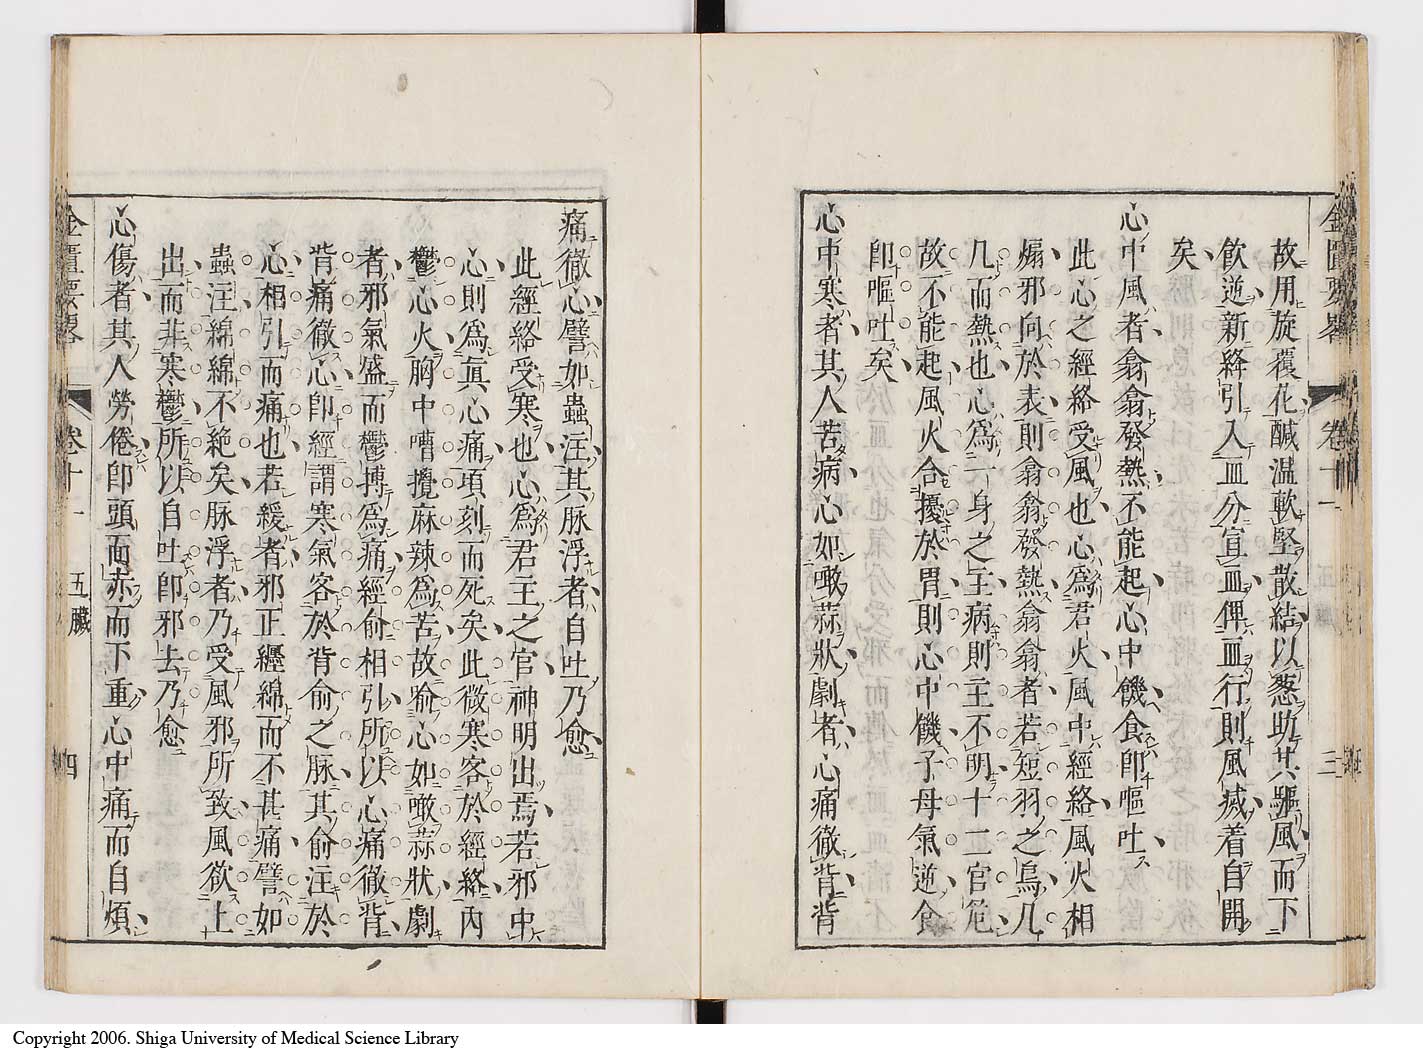 金匱要畧 卷十一 三
故用旋覆化醎温軟堅散結以葱助其驅風而下
飲逆新絳引入血分宣血俾血行則風减着自開
矣
心中風者翕翕發熱不能起心中饑食卽嘔吐
此心之經絡受風也心爲君火風中經絡風火相
煽邪向於表則翕翕發熱翕翕者若短羽之鳥几
几而熱也心爲一身之主病則主不明十二官危
故不能起風火合擾於胃則心中饑子母氣逆食
卽嘔吐矣
心中寒者其人苦病心如噉蒜狀劇者心痛徹背背
痛徹心譬如蟲注其脉浮者自吐乃愈
此經絡受寒也心爲君主之官神明出焉若邪中
心則爲眞心痛頃刻而死矣此微寒客於經絡內
鬱心火胸中嘈攪麻辣爲苦故喻心如噉蒜狀劇
者邪氣盛而鬱搏爲痛經俞相引所以心痛徹背
背痛徹心卽經謂寒氣客於背俞之脉其俞注於
心相引而痛也若緩者邪正纒綿而不甚痛譬如
蟲注綿綿不絶矣脉浮者乃受風邪所致風欲上
出而非寒鬱所以自吐卽邪去乃愈
心傷者其人勞倦卽頭面赤而下重心中痛而自煩
金匱要畧 卷十一 五臟 四
Copyright 2006. Shiga University of Medical Science Library